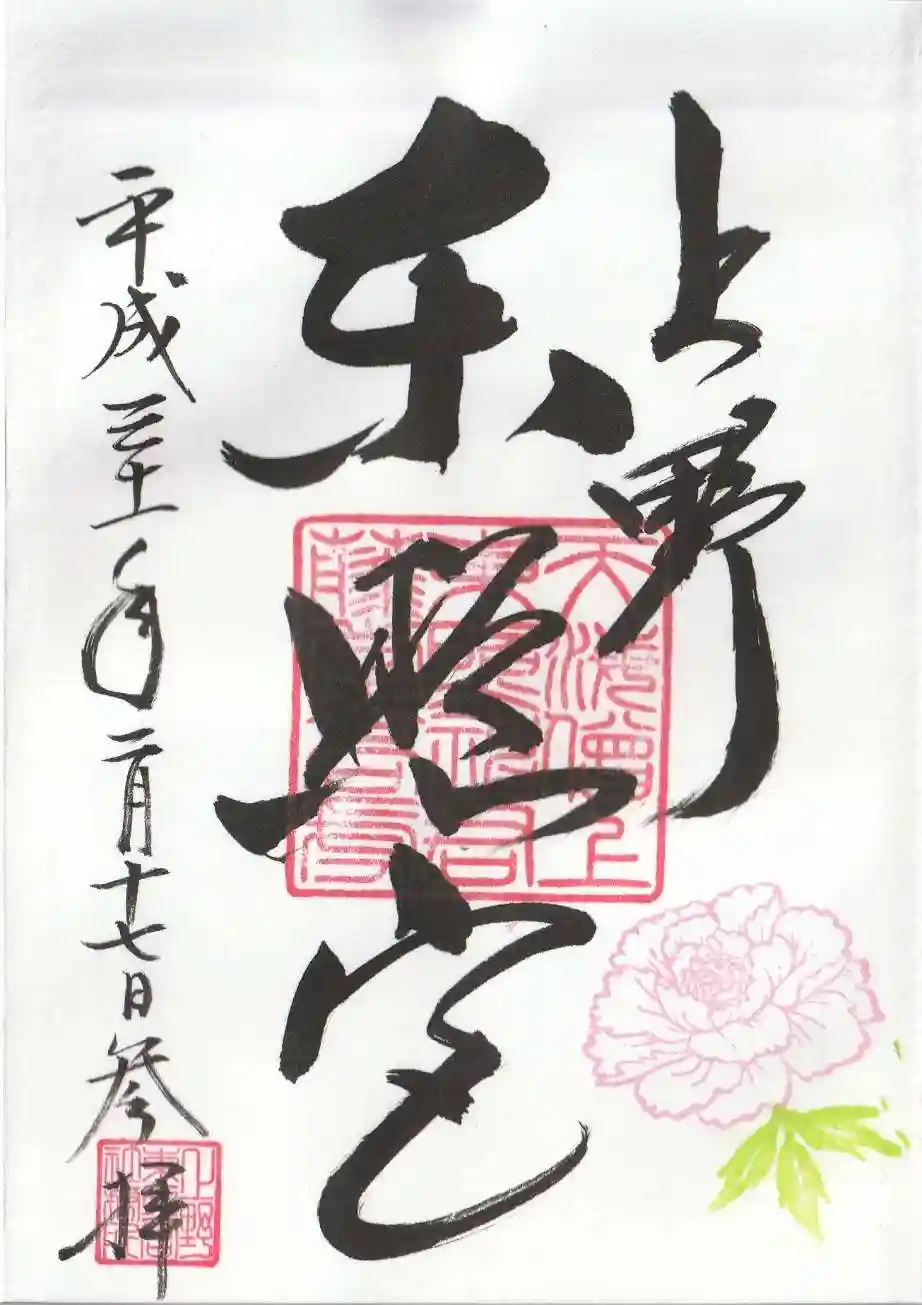 上野
東照宮
平成三十一年二月十七日参拝